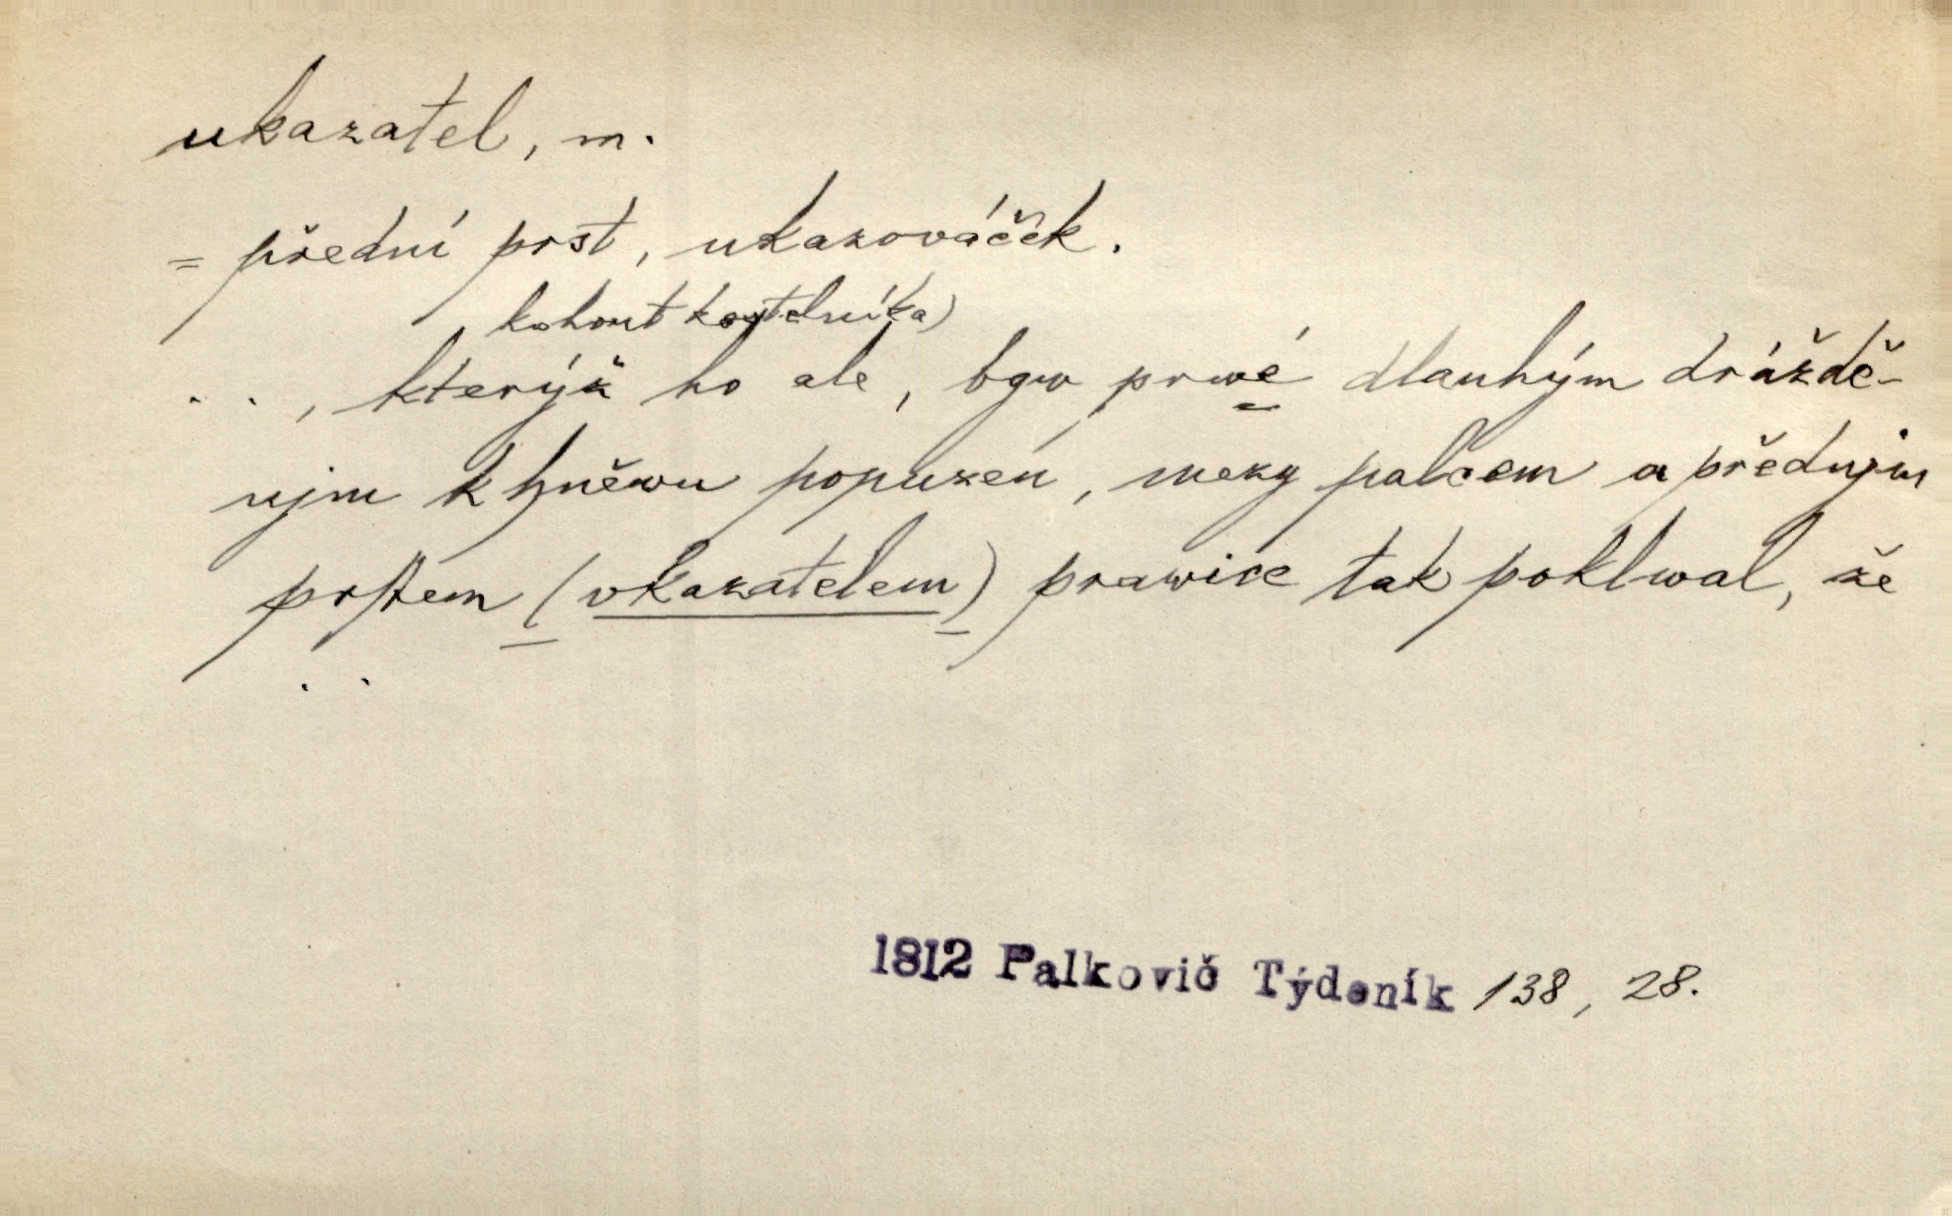 ukazatel, m.
= přední prst, ukazováček.
kohout kostelníka)
. . , kterýž ho ale, bgw prwé dlauhým dráždě-
njm k hněwu popuzen, mezy palcem a přednjm
prſtem (vkazatelem) prawice tak poklwal, že
. .
1812 Palkovič Týdeník 138, 28.